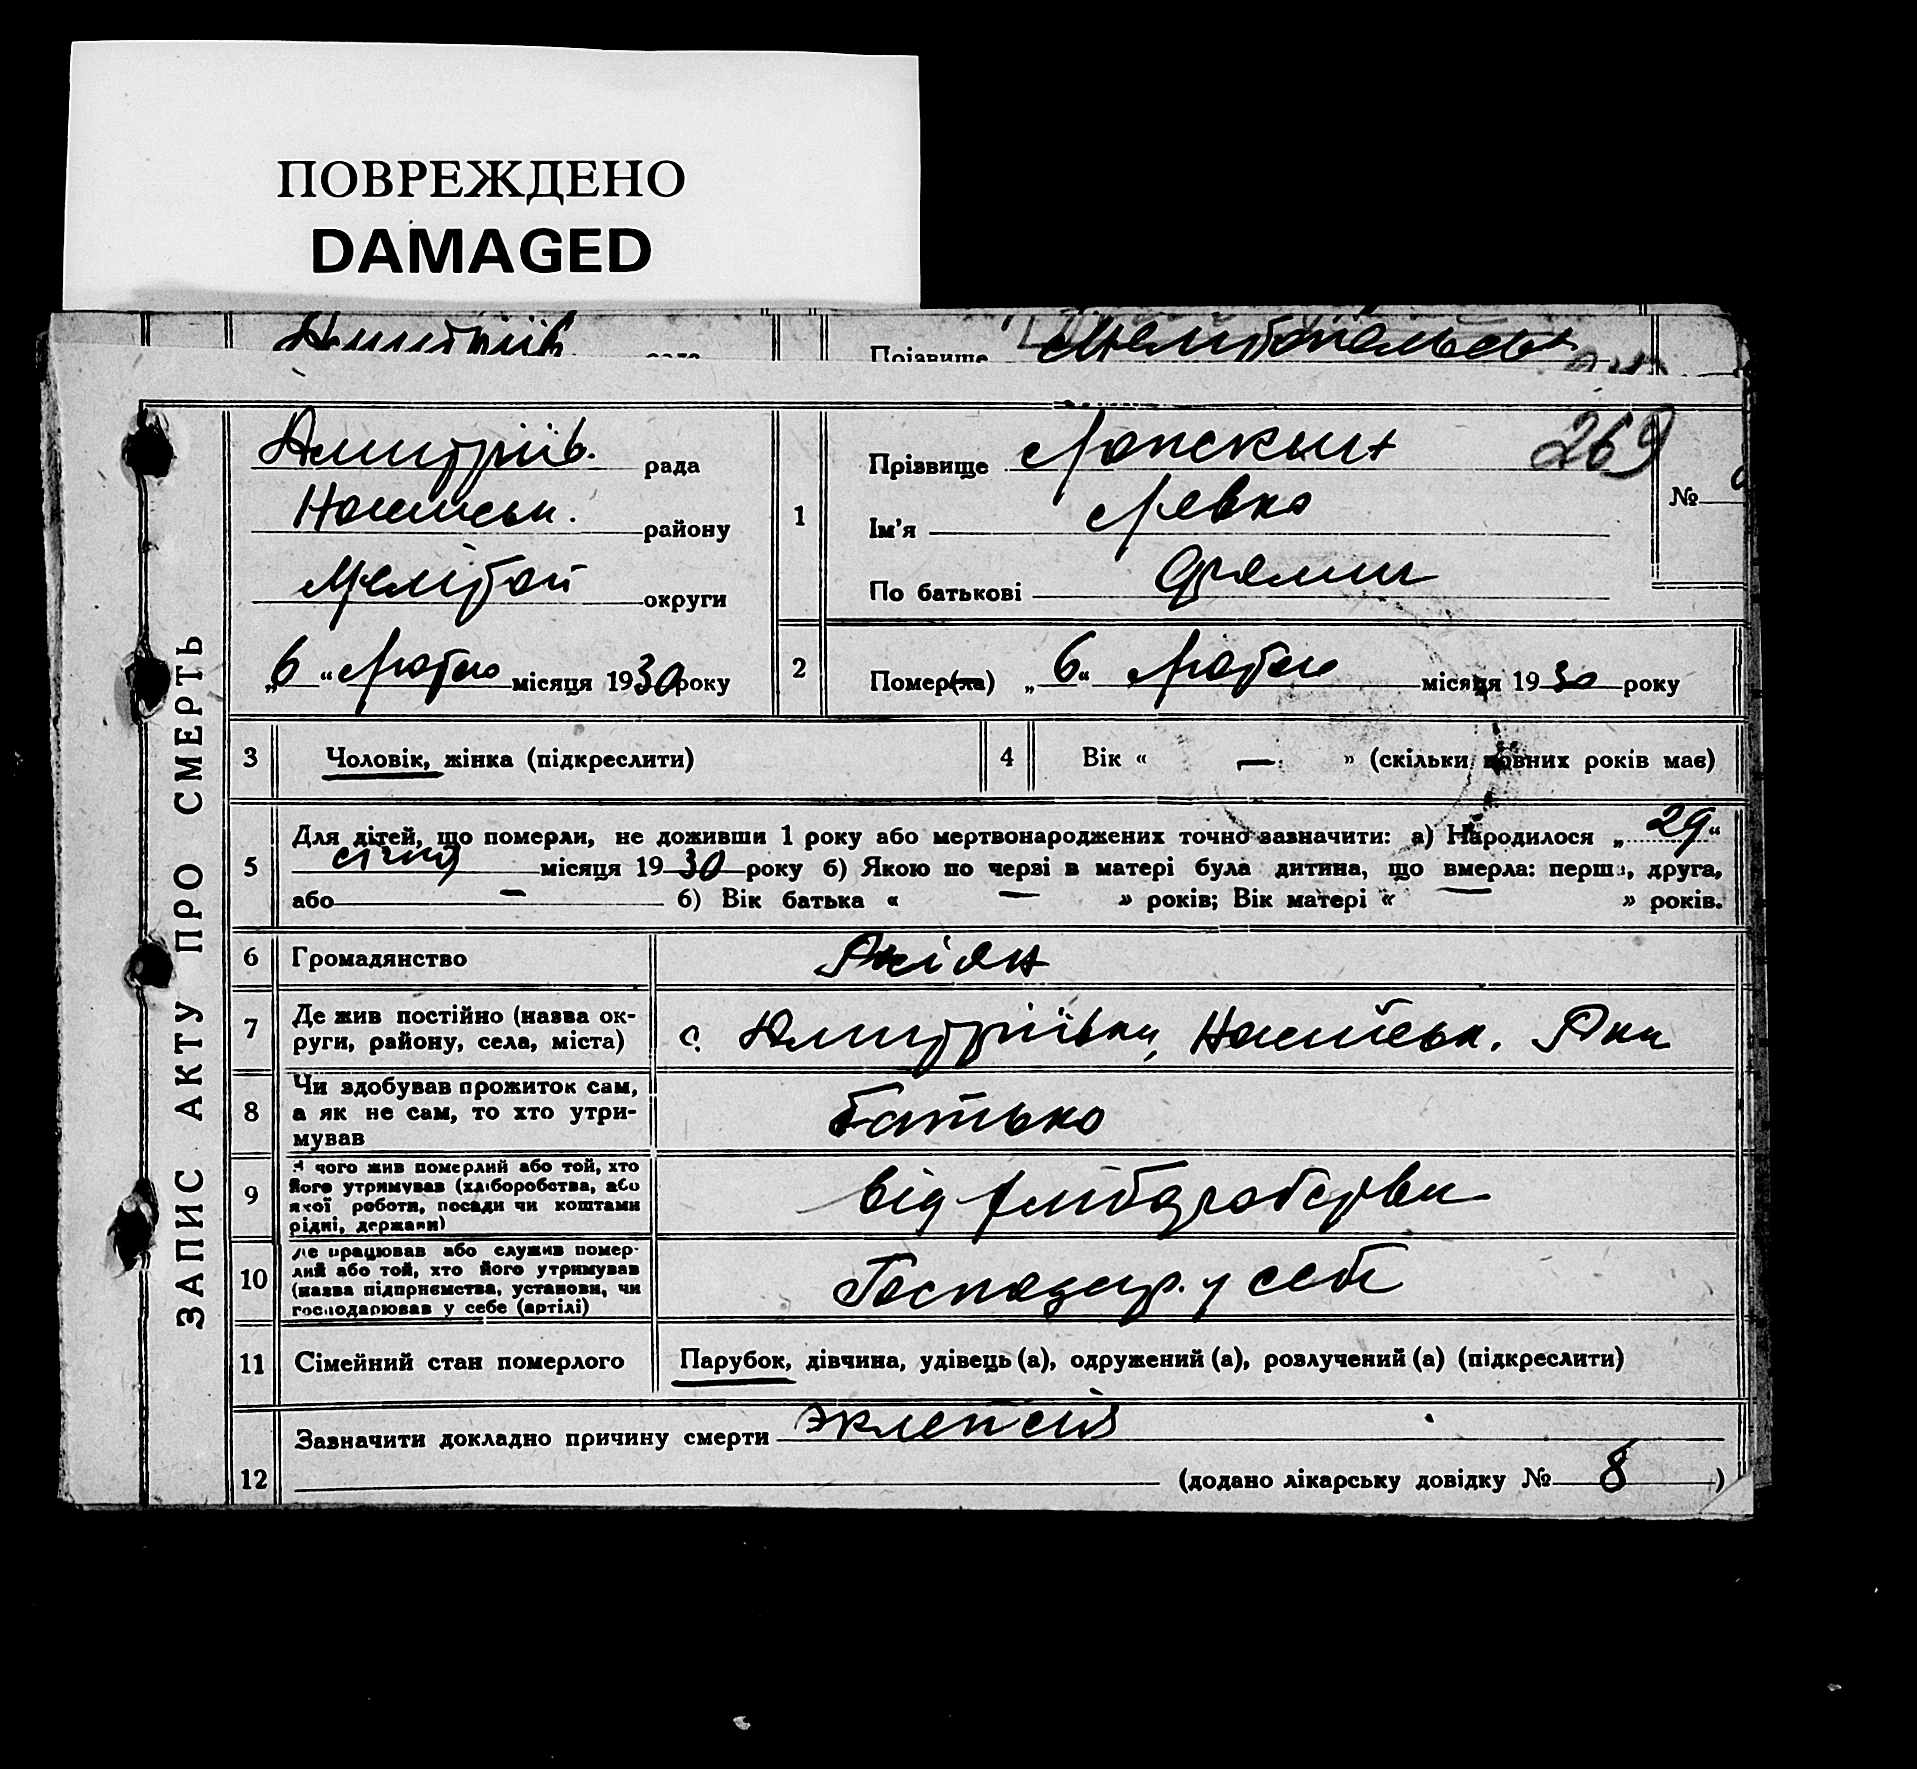 ПОВРЕЖДЕНО
DAMAGED
Прізвище
ЗАПИС АКТУ ПРО СМЕРТЬ
Дмитріїв. рада
району
округи
„6“ Лютого місяця 1930 року
269
1 Прізвище
№
Ім'я Левко
По батькові
2 Помер(ла) „6“ Лютого місяця 1930 року
3 Чоловік, жінка (підкреслити)
4 Вік « — » (скільки повних років має)
5 Для дітей, що померли, не доживши 1 року або мертвонароджених точно зазначити: а) Народилося „29“
січня місяця 1930 року б) Якою по черзі в матері була дитина, що вмерла: перша, друга,
або — б) Вік батька « — » років; Вік матері « » років.
6 Громадянство
7 Де жив постійно (назва ок-
руги, району, села, міста) с. Дмитріївки,
8 Чи здобував прожиток сам,
а як не сам, то хто утри-
мував Батько
9 З чого жив померлий або той, хто
його утримував (хліборобства, або
якої роботи, посади чи коштами
рідні, держави) від хліборобства
10 Де працював або служив помер-
лий або той, хто його утримував
(назва підприємства, установи, чи
господарював у себе (артілі) Господар. у себе
11 Сімейний стан померлого Парубок, дівчина, удівець (а), одружений (а), розлучений (а) (підкреслити)
12 Зазначити докладно причину смерти эклепсия
(додано лікарську довідку № 8)